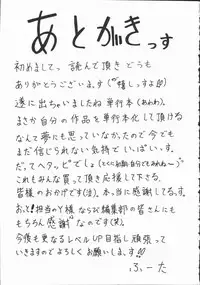 あとがきっす
初めまして。読んで頂き どうも
ありがとうございます。
遂に出ちゃいましたね単行本(あわわ)。
まさか自分の作品を単行本化して頂ける
なんて夢にも思っていなかったので今でも
まだ信じられない気持でいぱいす。
だってヘタッピでしょ
これもみんな買って頂き応援して下さる
皆様のおかげです(泣)。本っ当に感謝してるす。
おっと!担当のY様ならび編集部の皆さんにも
もちろん感謝なのです(笑)。
今後も更なるレベルUP目指し頑張って
いきますのでよろしくお願いします!!!
ふーた